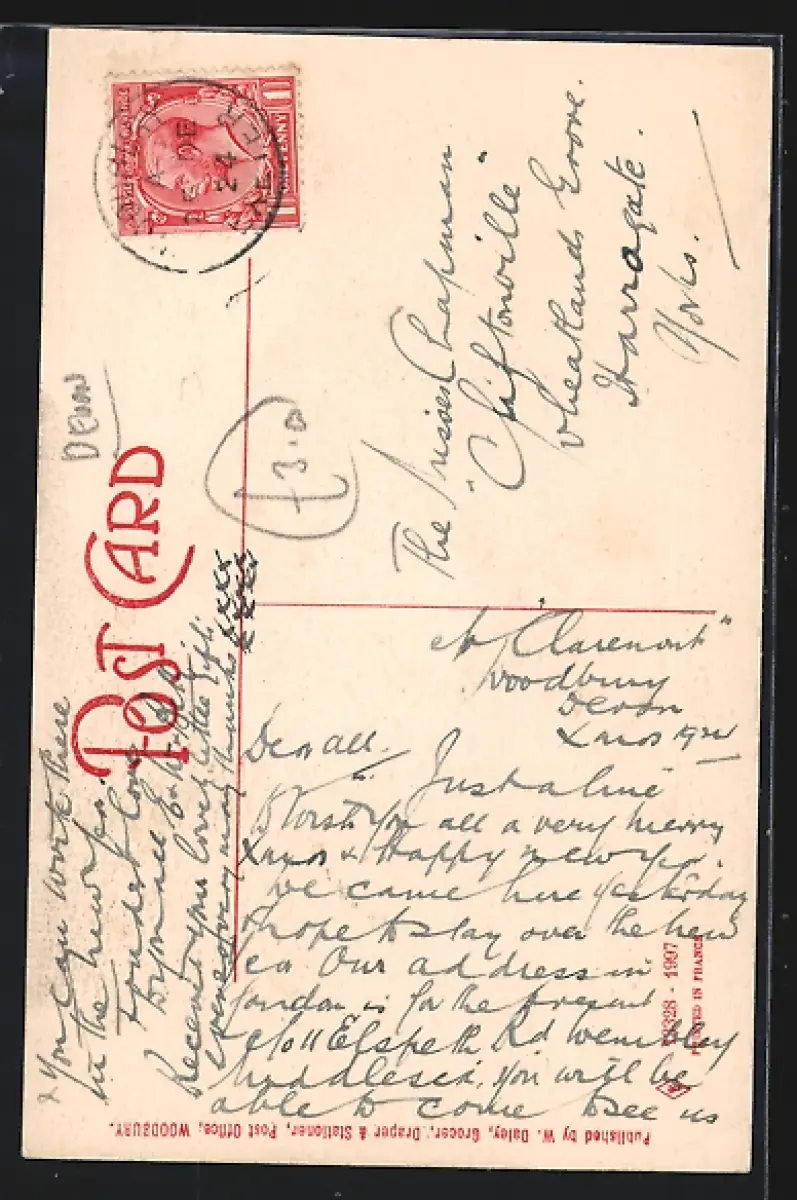 POST CARD
DEVON
£3.0
ONE PENNY
EXETER
DE
24
The Misses Chapman
"Cliftonville"
Wheatlands Grove.
Harrogate.
Yorks.
"Claremont"
Woodbury
Devon
Xmas 1924
Dear all.
Just a line
to wish you all a very merry
Xmas & Happy new year.
We came here yesterday
& hope to stay over the new
Our address in
London is for the present
c/o 11 Elspeth Rd Wembley
Middlesex, you will be
able to come & see us
& you can work there
in the new year
Fondest love
to you all
Received your lovely little gifts
many thanks
xxxx
xxxx
18328 - 1997
PRINTED IN FRANCE
Published by W. Daley, Grocer, Draper & Stationer, Post Office, WOODBURY.